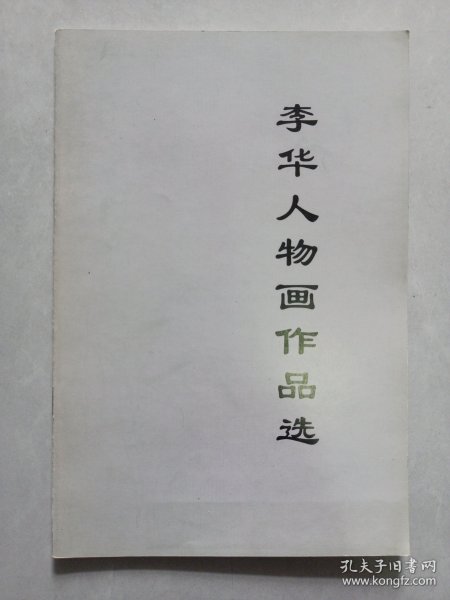 李华人物画作品选
孔夫子旧书网
www.kongfz.com